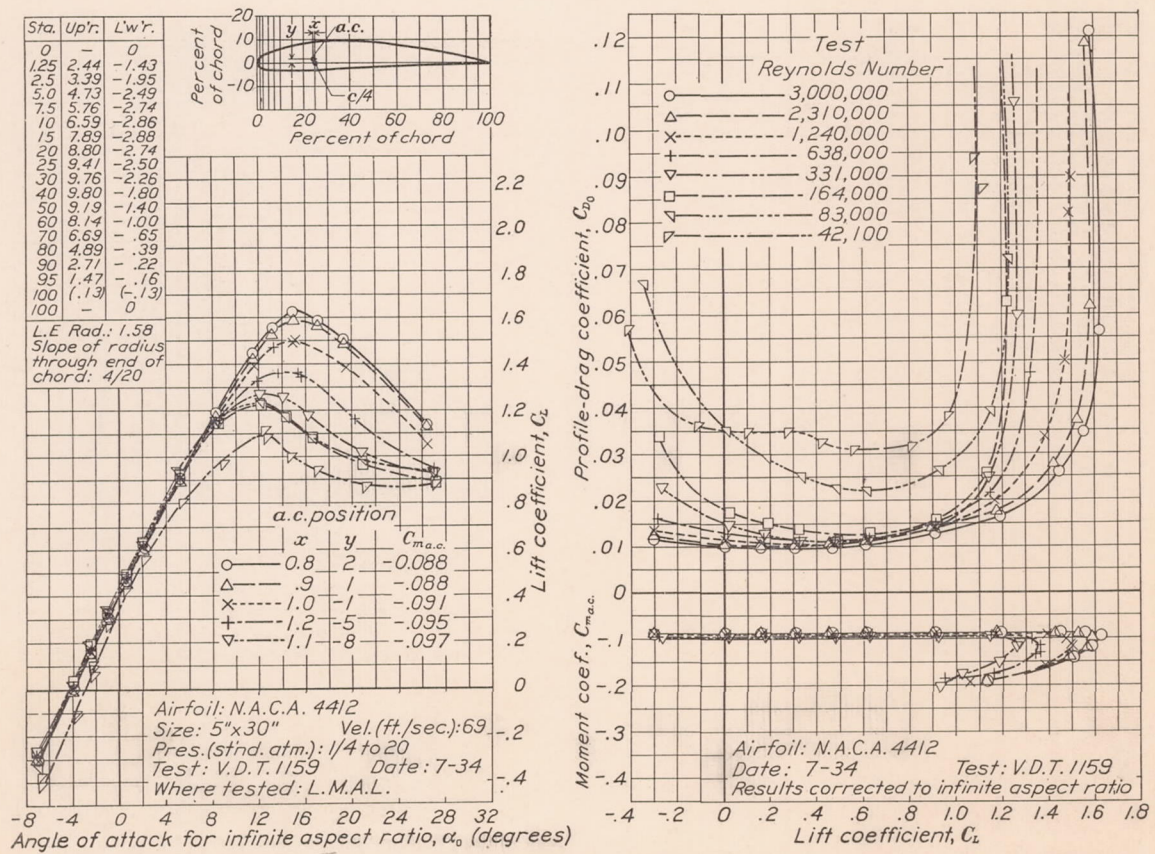 Sta. Up'r. L'w'r.
0 – 0
1.25 2.44 -1.43
2.5 3.39 -1.95
5.0 4.73 -2.49
7.5 5.76 -2.74
10 6.59 -2.86
15 7.89 -2.88
20 8.80 -2.74
25 9.41 -2.50
30 9.76 -2.26
40 9.80 -1.80
50 9.19 -1.40
60 8.14 -1.00
70 6.69 -.65
80 4.89 -.39
90 2.71 -.22
95 1.47 -.16
100 (.13) (-.13)
100 – 0
L.E. Rad.: 1.58
Slope of radius
through end of
chord: 4/20
Percent
of chord
20
10
0
-10
y x a.c.
c/4
0 20 40 60 80 100
Percent of chord
2.2
2.0
1.8
1.6
1.4
1.2
1.0
.8
.6
.4
.2
0
-.2
-.4
Lift coefficient, CL
a.c. position
x y Cma.c.
0.8 2 -0.088
.9 1 -.088
1.0 -1 -.091
1.2 -5 -.095
1.1 -8 -.097
Airfoil: N.A.C.A. 4412
Size: 5"x30" Vel.(ft./sec.):69
Pres.(st'nd. atm.): 1/4 to 20
Test: V.D.T. 1159 Date: 7-34
Where tested: L.M.A.L.
-8 -4 0 4 8 12 16 20 24 28 32
Angle of attack for infinite aspect ratio, α0 (degrees)
.12
.11
.10
.09
.08
.07
.06
.05
.04
.03
.02
.01
0
Profile-drag coefficient, CD0
Test
Reynolds Number
3,000,000
2,310,000
1,240,000
638,000
331,000
164,000
83,000
42,100
-.1
-.2
-.3
-.4
Moment coef., Cma.c.
Airfoil: N.A.C.A. 4412
Date: 7-34 Test: V.D.T. 1159
Results corrected to infinite aspect ratio
-.4 -.2 0 .2 .4 .6 .8 1.0 1.2 1.4 1.6 1.8
Lift coefficient, CL